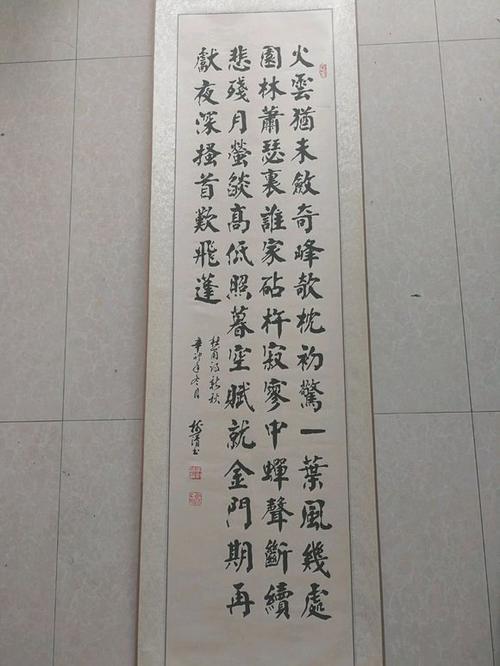 火雲猶未斂奇峰欹枕初驚一葉風幾處
園林蕭瑟裏誰家砧杵寂寥中蟬聲斷續
悲殘月螢燄高低照暮空賦就金門期再
獻夜深搔首歎飛蓬
杜甫诗新秋
辛卯年冬月
清书